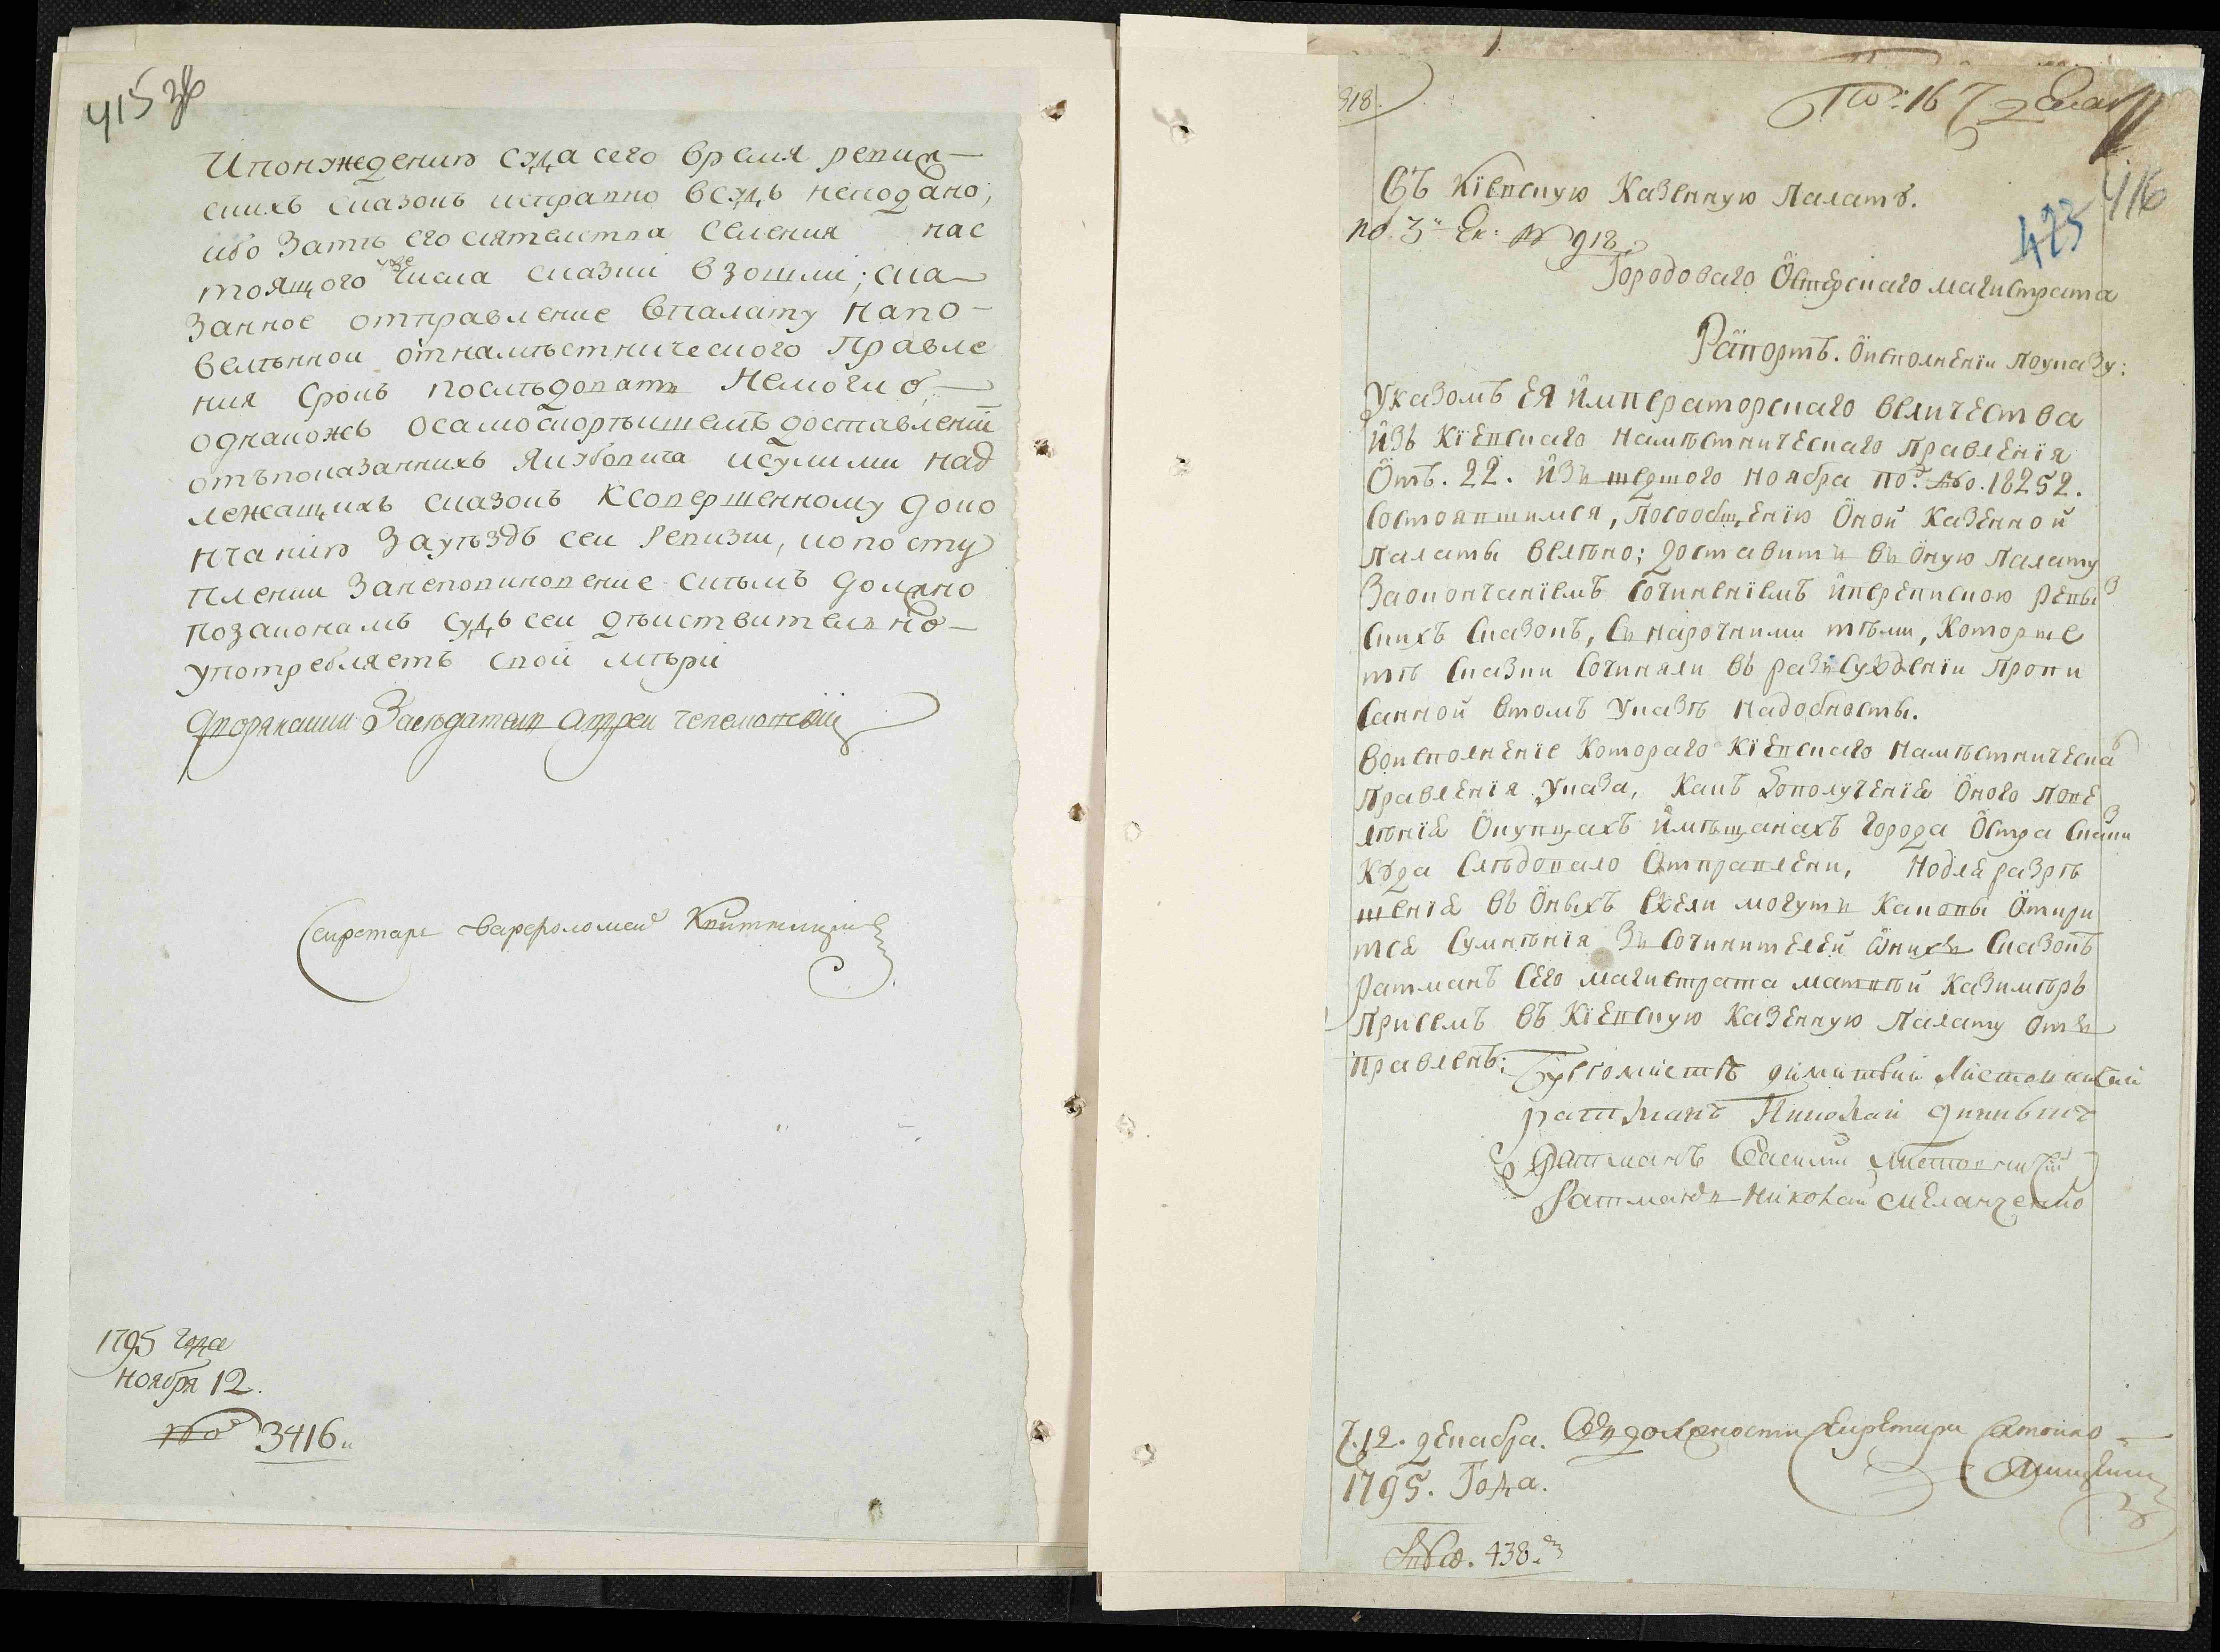 415 зв
Ипонуждению суда сего время ревиз—
скихъ сказокъ исправно всудъ неподано;
ибо Зать его сіятелства Селения нас
тоящого уже числа сказки взошли; ска—
Занное отправление впалату напо—
веленной отнаместнического Правле
ния срокъ последовать Немогло,—
однакожъ осамоскорейшемъ доставлений
отъпоказанныхъ Якубовича исулими над
лежащихъ сказокъ Ксовершенному доко
нчанию Зауездъ сей Ревизии, копосту
плении Занеповиновение ситымъ должно
позаконамъ Судъ сей действительно—
употребляетъ свои меры
Дворянский Заседатель Андрей
Секретарь Варфоломей
1795 года
ноября 12.
№ 3416.
918.
По: 16 7 Декаб
416
423
Въ Кіевскую Казенную Палату.
по 3й Ек: № 918
Городоваго Остерскаго магистрата
Рапортъ. Оисполненіи поуказу:
Указомъ ЕЯ Императорскаго величества
Изъ Кіевскаго наместническаго правленія
Отъ. 22. Изъшедшого ноября по.д №о. 18252.
Состоявшимся, посообщенію Оной Казенной
палаты велено; доставить въ Оную палату
Заокончаніемъ Сочиненіемъ иперепискою реви
скихъ Сказокъ, Съ нарочними теми, Которые
те Сказки Сочиняли въ разъсужденіи пропи
санной втомъ указе надобносты.
воисполненіе Котораго Кіевскаго наместническа
правленія указа, Какъ Дополученія Оного пове
ленія Окупцахъ Имещанахъ города Остра Сказки
Куда Следовало Отправлени, Нодля разре
шенія въ Оныхъ Ежели могутъ Каковы Откри
тся Сумненія Зъ Сочинителей оныхъ Сказокъ
ратманъ Сего магистрата матвей Казимеръ
присемъ въ Кіевскую Казенную Палату отъ
правленъ:
Бургомистръ димитрий Листовничій
ратманъ Николай
Ратманъ Василий Листовничій
Ратманъ Николай
Ч. 12. декабря.
1795. Года.
Въ должности Секретаря
№о. 438.